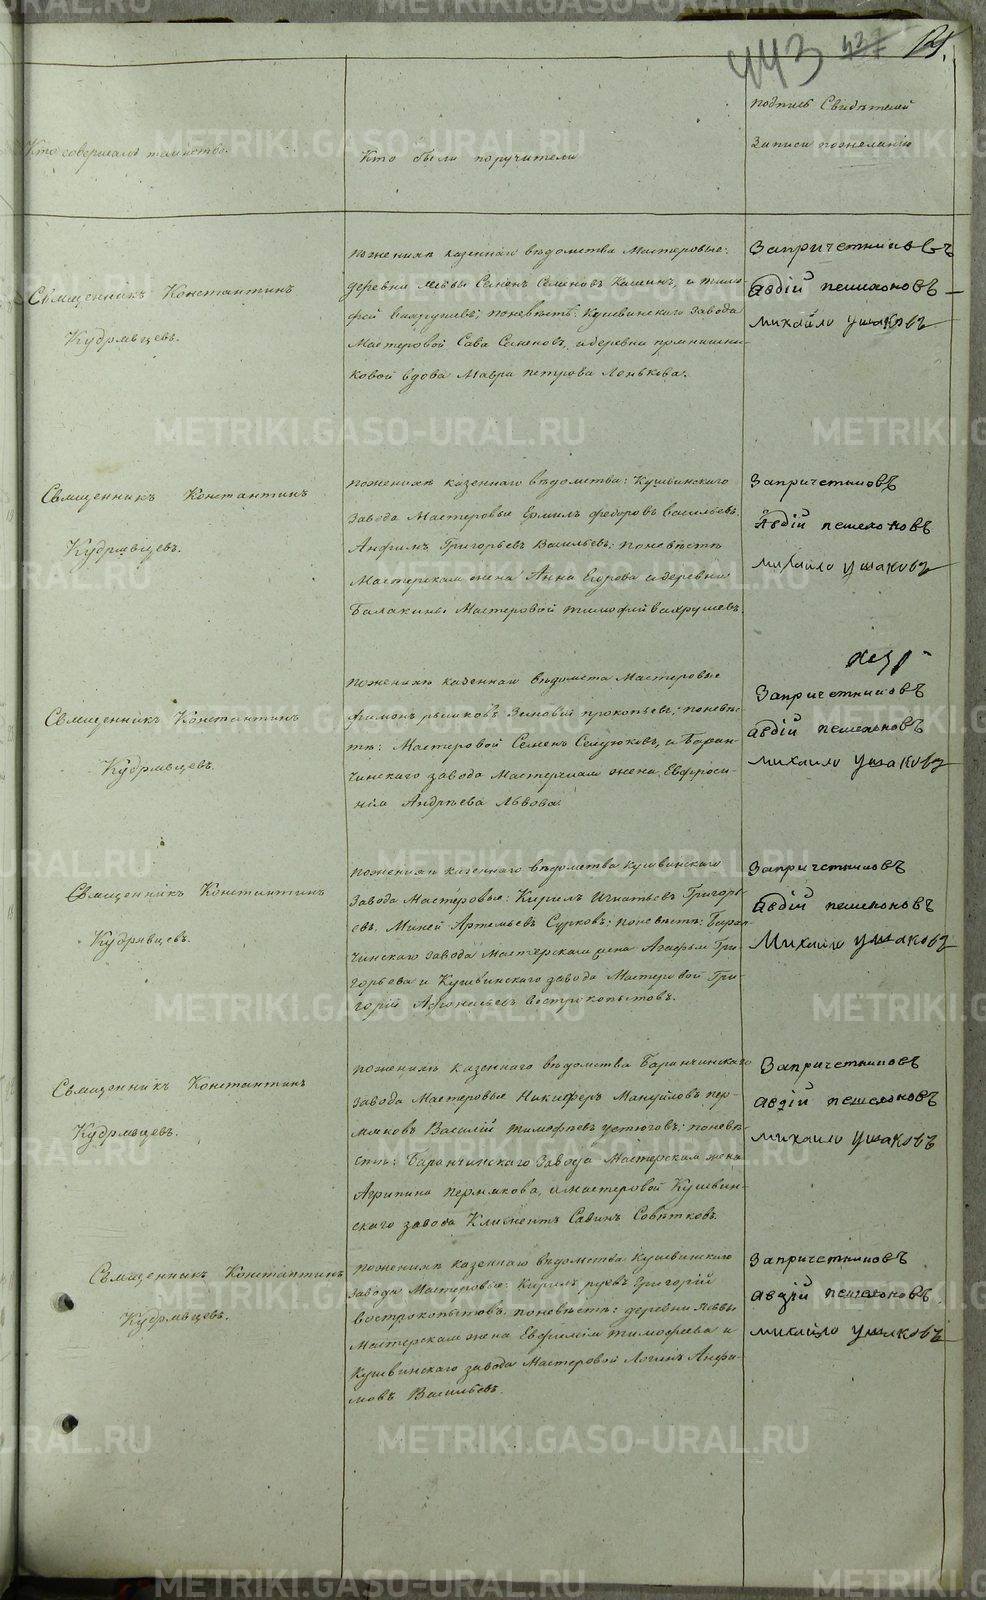 443 437
Кто совершалъ таинство.
Кто были поручители
подпись Свидѣтелей
Записи пожеланію
Священникъ Константинъ
Кудрявцевъ.
пожениху казеннаго вѣдомства Мастеровые:
деревни Семенъ Семеновъ и Тимо-
фей Вахрушевъ; поневѣстѣ: Кушвинскаго Завода
Мастеровой Сава Семеновъ, идеревни
ковой вдова Мавра петрова
Запричетниковъ
Авдій пешехоновъ
Михайло ушаковъ
Священникъ Константинъ
Кудрявцевъ.
пожениху казеннаго вѣдомства: Кушвинскаго
Завода Мастеровые Ермилъ федоровъ васильевъ.
Анфимъ Григорьевъ Васильевъ; поневѣстѣ
Мастерская жена Анна Егорова идеревни
Балакины Мастеровой тимофей вахрушевъ.
Запричетниковъ
Авдій пешехоновъ
михайло ушаковъ
Священникъ Константинъ
Кудрявцевъ.
пожениху казеннаго Мастеровые
Зиновій прокопьевъ; поневѣс-
тѣ: Мастеровой Семенъ и Баран-
чинскаго завода Мастерская жена Евфроси-
нія Андрѣева Львова.
Запричетниковъ
авдій пешехоновъ
михайло ушаковъ
Священникъ Константинъ
Кудрявцевъ.
пожениху казеннаго вѣдомства кушвинскаго
Завода Мастеровые: Кирилъ Игнатьевъ Григорь-
евъ, Миней Артемьевъ Сурковъ; поневѣстѣ: Баран-
чинскаго Завода Мастерская жена Агафья Гри-
горьева и Кушвинскаго завода Мастеровой Гри-
горій Афонасьевъ вострокопытовъ.
Запричетниковъ
Авдій пешехоновъ
Михайло ушаковъ
Священникъ Константинъ
Кудрявцевъ.
пожениху казеннаго вѣдомства Баранчинскаго
завода Мастеровые Никифоръ Мануйловъ пер-
мяковъ Василій тимофѣевъ устюговъ; поневѣ-
стѣ: Баранчинскаго Завода Мастерская жена
Агрипина пермякова, имастеровой Кушвин-
скаго завода Климентъ Савинъ
Запричетниковъ
авдій пешехоновъ
михайло ушаковъ
Священникъ Константинъ
Кудрявцевъ.
пожениху казеннаго вѣдомства кушвинскаго
завода Мастеровые: Кирилъ Григорій
вострокопытовъ. поневѣстѣ: деревни
Мастерская жена Евфимія тимофеева и
кушвинскаго завода Мастеровой Логинъ Анфи-
мовъ Васильевъ.
Запричетниковъ
авдій пешехоновъ
михайло ушаковъ
METRIKI.GASO-URAL.RU